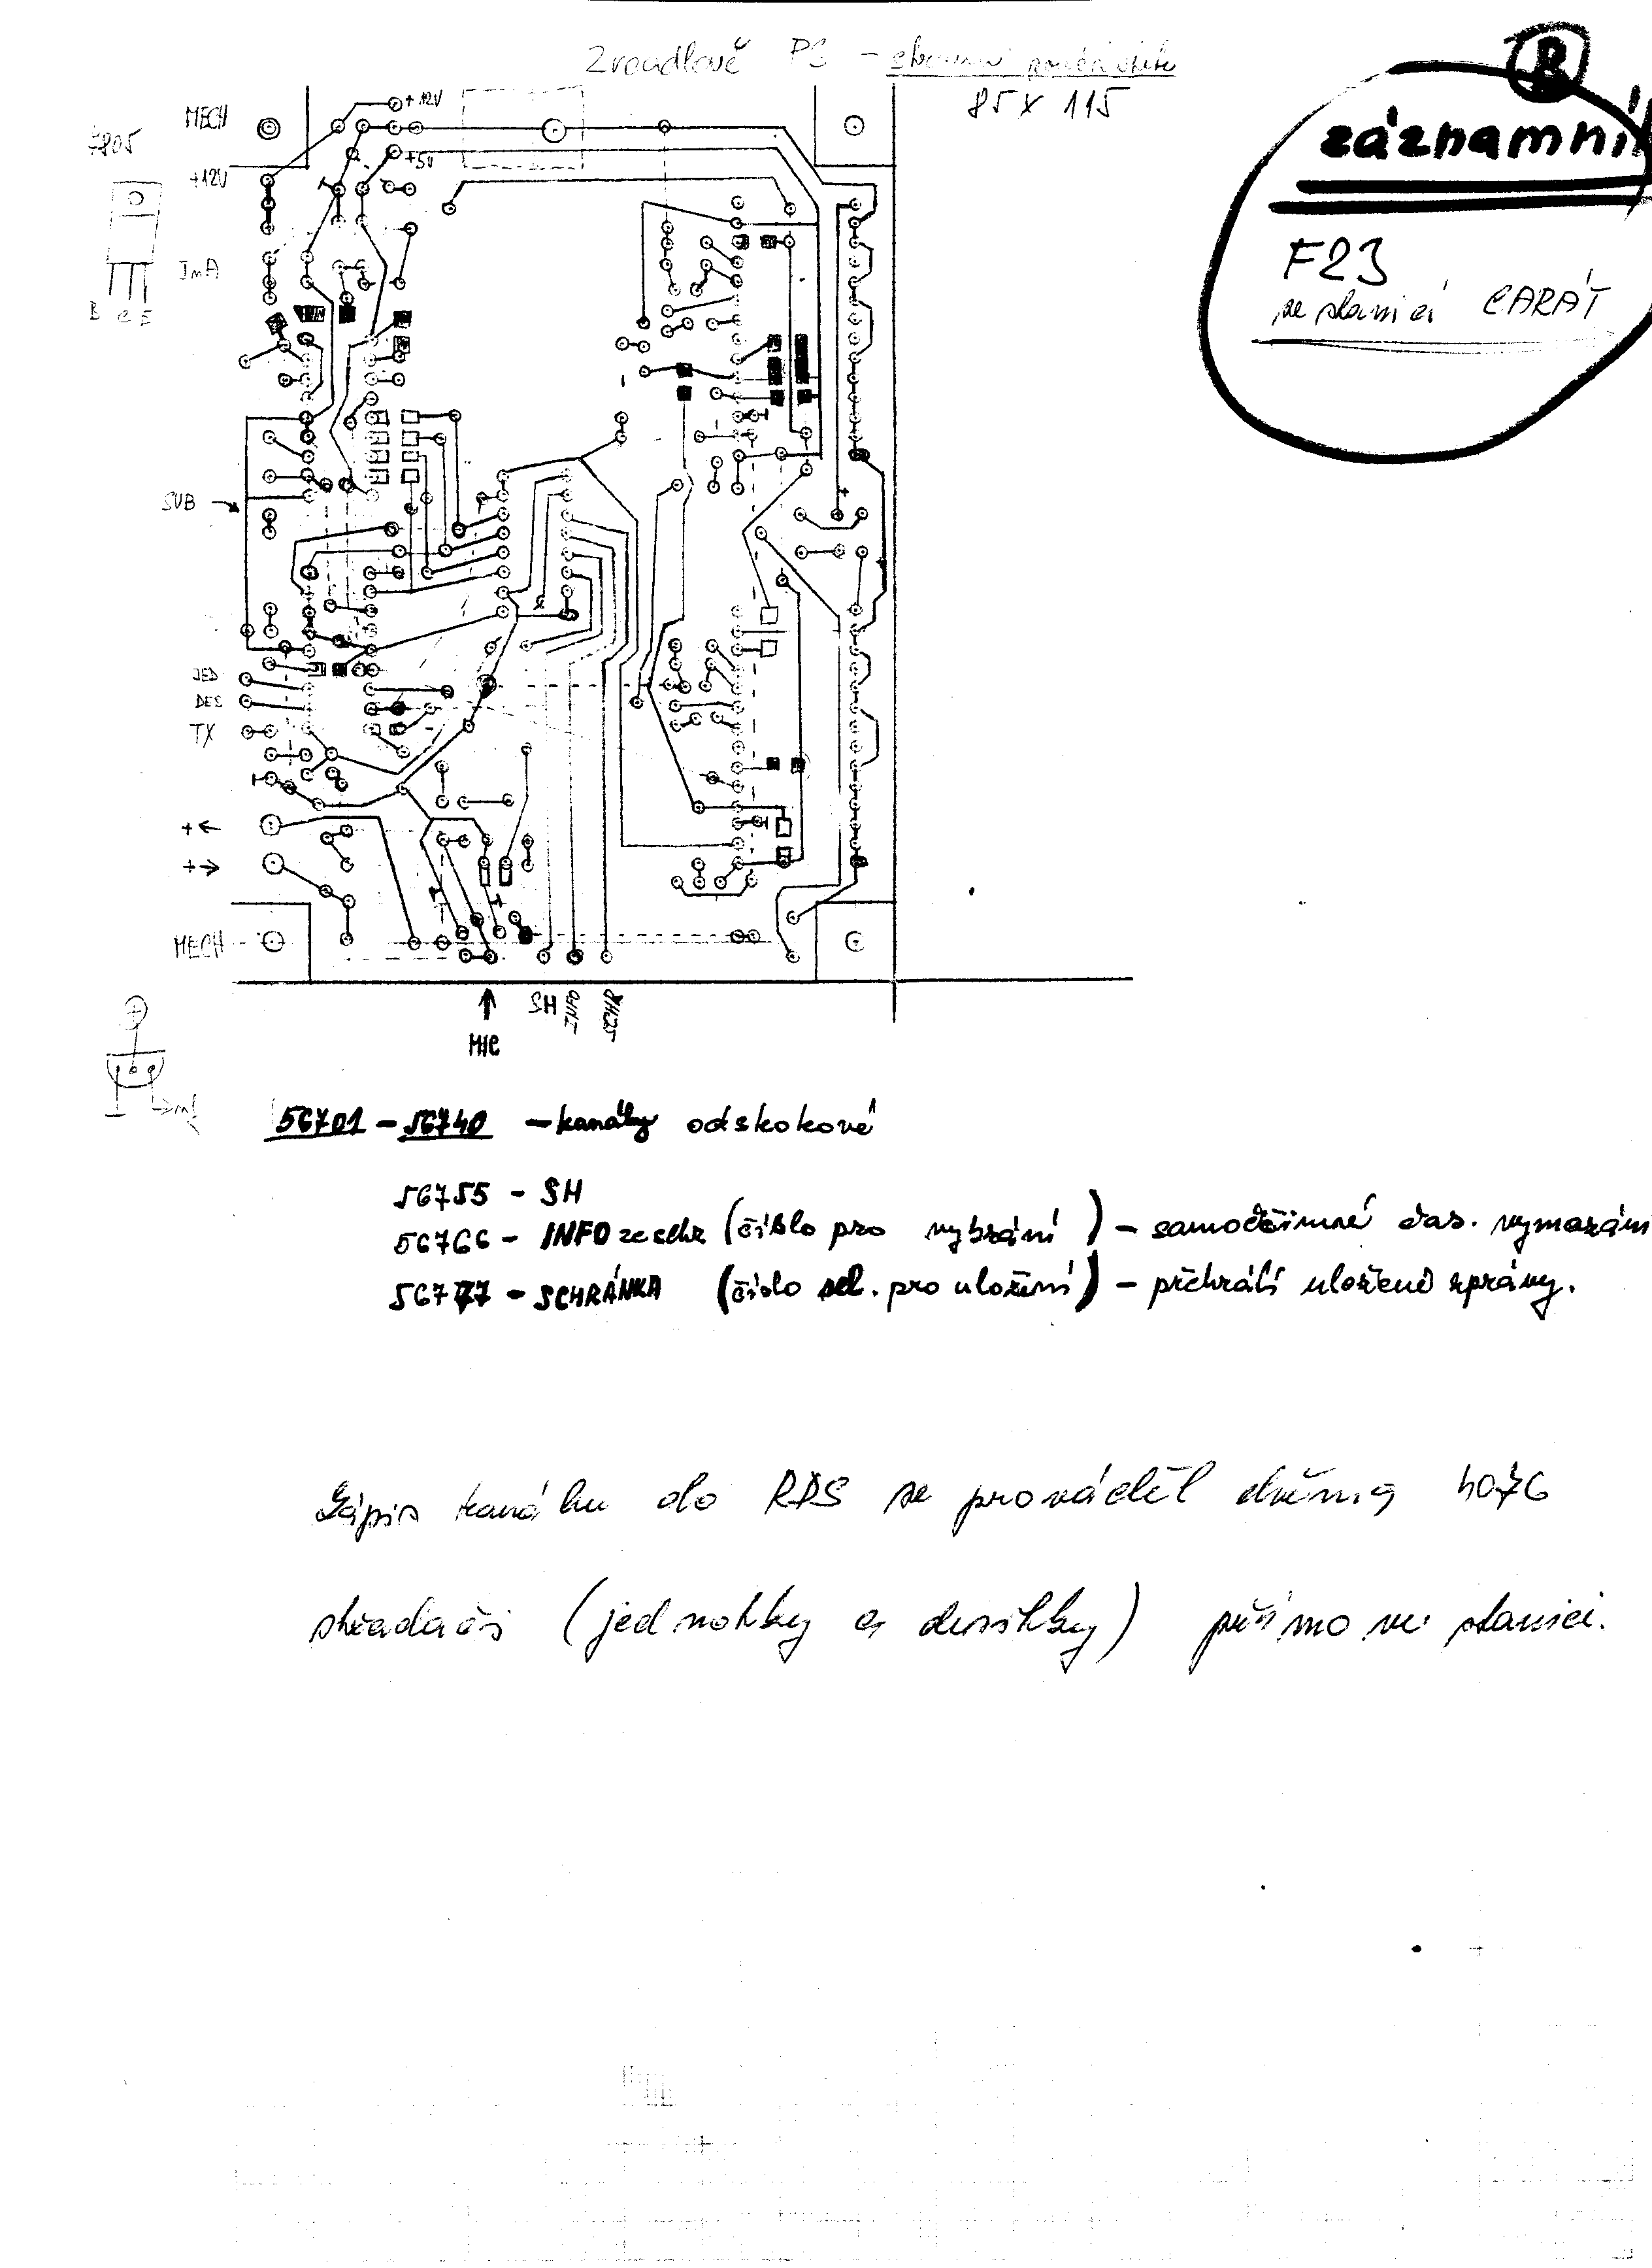 Zrcadlově PS - strana součástek
85 x 115
B
záznamní
F23
se stanicí CARÁT
7805
B C E
MECH
+12V
+5V
+12V
SUB
JED
DES
TX
+←
+→
MECH
MIC
SH
56701 - 56740 - kanály odskokové
56755 - SH
56766 - INFO ze schr (číslo pro vybrání) - samočinné čas. vymazání
56777 - SCHRÁNKA (číslo sel. pro uložení) - přehrátí uložené zprávy.
Zápis kanálu do RDS se prováděl dvěma 4076
střadači (jednotky a desítky) přímo ve stanici.